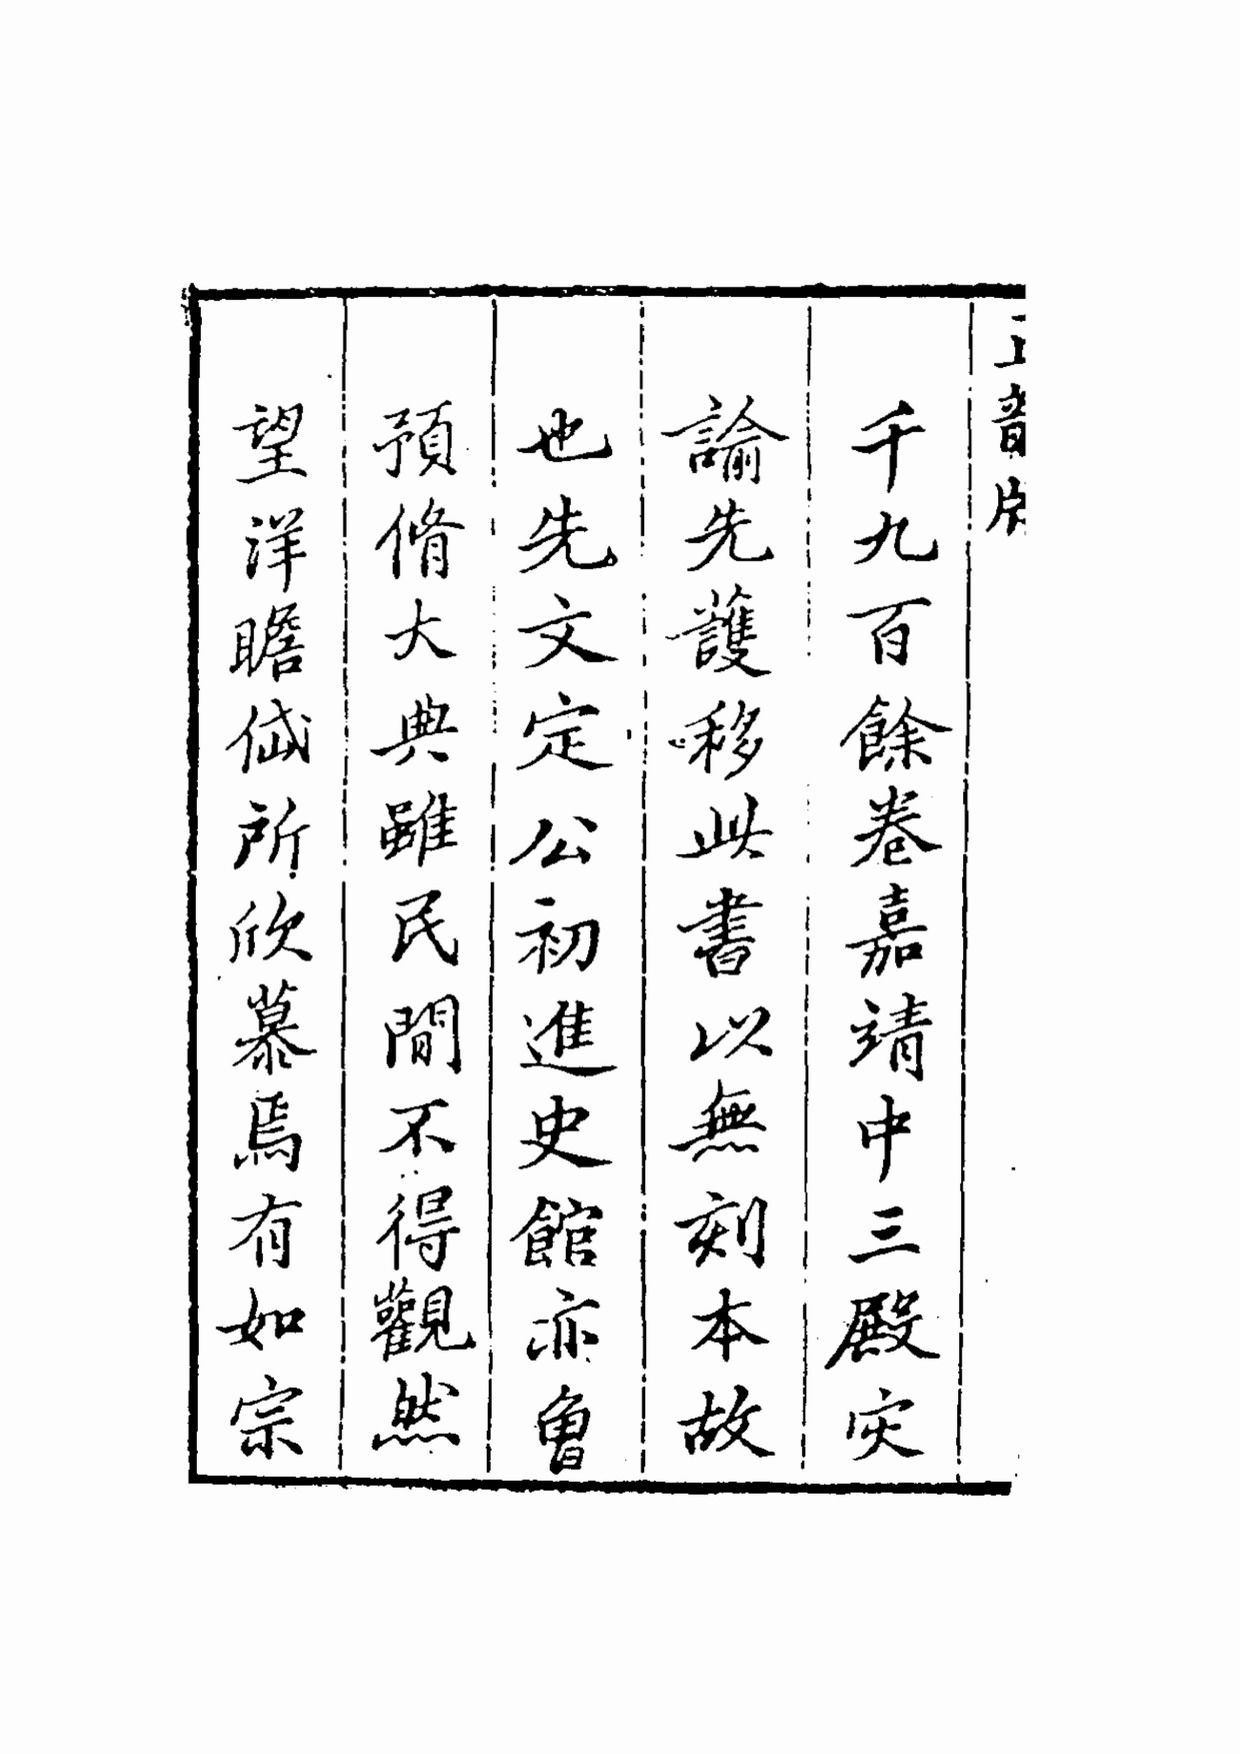 千九百餘卷嘉靖中三殿灾
諭先護移此書以無刻本故
也先文定公初進史館亦曾
預脩大典雖民間不得觀然
望洋瞻岱所欣慕焉有如宗